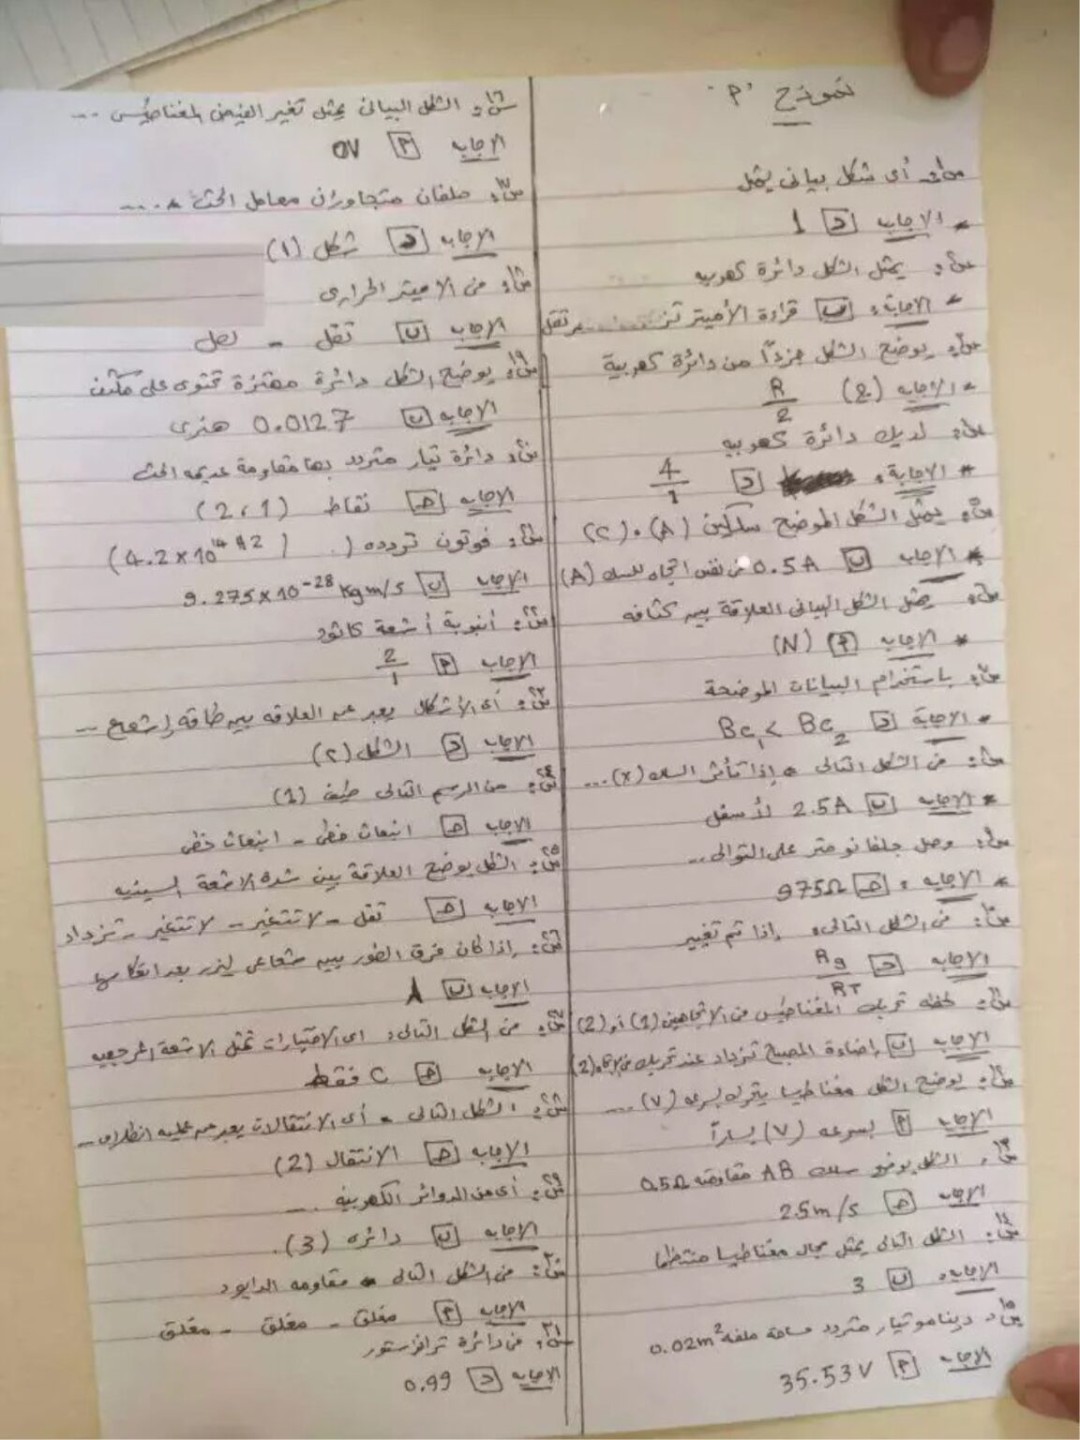 نموذج "٢"
س١: أى شكل بيانى يمثل
* الاجابه [د] 1
س٢: يمثل الشكل دائرة كهربيه
* الاجابة: [ب] قراءة الأميتر تقل
س٣: يوضح الشكل جزءاً من دائرة كهربية
* الاجابه (ج) R/2
س٤: لديك دائرة كهربيه
* الاجابة: [د] 4/1
س٥: يمثل الشكل الموضح سلكين (A)، (C)
* الاجابه [ب] 0.5A فى نفس اتجاه السلك (A)
س٦: يمثل الشكل البيانى العلاقة بين كثافه
* الاجابه [٢] (N)
س٧: باستخدام البيانات الموضحة
* الاجابة [د] Bc₁ < Bc₂
س٨: فى الشكل التالى إذا تأثر السلك (x)...
* الاجابه [ب] 2.5A لأسفل
س٩: وصل جلفانومتر على التوالى...
* الاجابه: [حـ] 975Ω
س١٠: فى الشكل التالى، إذا تم تغيير
الاجابه [د] Rg/RT
س١١: لحظه تحريك المغناطيس فى الاتجاهين (1) أو (2)
الاجابه [ب] إضاءة المصباح تزداد عند تحريك فى (2)
س١٢: يوضح الشكل مغناطيسا يتحرك بسرعه (V)...
الاجابه [٢] بسرعه (V) يساراً
س١٣: الشكل يوضح سلك AB مقاومته 0.5Ω
الاجابه [حـ] 25m/s
س١٤: الشكل التالى يمثل مجال مغناطيسيا منتظما
الاجابه: [ب] 3
س١٥: دينامو تيار متردد مساحة ملفه 0.02m²
الاجابه [٢] 35.53V
س١٦: الشكل البيانى يمثل تغير الفيض المغناطيسى ...
الاجابه [٢] 0V
س١٧: ملفان متجاوران معامل الحث ....
الاجابه [د] شكل (1)
س١٨: فى الاميتر الحرارى
الاجابه [ب] تقل - تصل
س١٩: يوضح الشكل دائرة مهتزة تحتوى على مكثف
الاجابه [ب] 0.0127 هنرى
س٢٠: دائرة تيار متردد بها مقاومة عديمه الحث
الاجابه [حـ] نقاط (2،1)
س٢١: فوتون تردده (4.2×10¹⁴ Hz)
الاجابه [ب] 9.275×10⁻²⁸ Kgm/s
س٢٢: أنبوبة أشعة كاثود
الاجابه [٢] 2/1
س٢٣: أى الأشكال يعبر عن العلاقه بين طاقه إشعاع ...
الاجابه [د] الشكل (٢)
س٢٤: من الرسم التالى طيف (1)
الاجابه [حـ] انبعاث خطى - انبعاث خطى
س٢٥: الشكل يوضح العلاقة بين شدة الاشعة السينيه
الاجابه [حـ] تقل - لا تتغير - لا تتغير - تزداد
س٢٦: إذا كان فرق الطور بين شعاعى ليزر بعد انعكاسها
الاجابه [ب] λ
س٢٧: من الشكل التالى، اى الاختيارات تمثل الاشعة المرجعيه
الاجابه [حـ] C فقط
س٢٨: الشكل التالى أى الانتقالات يعبر عن عمليه انطلاق ...
الاجابه [حـ] الانتقال (2)
س٢٩: أى من الدوائر الكهربيه ...
الاجابه [ب] دائره (3).
س٣٠: فى الشكل التالى مقاومه الدايود
الاجابه [٢] مغلق - مغلق - مغلق
س٣١: فى دائرة ترانزستور
الاجابه [د] 0.99